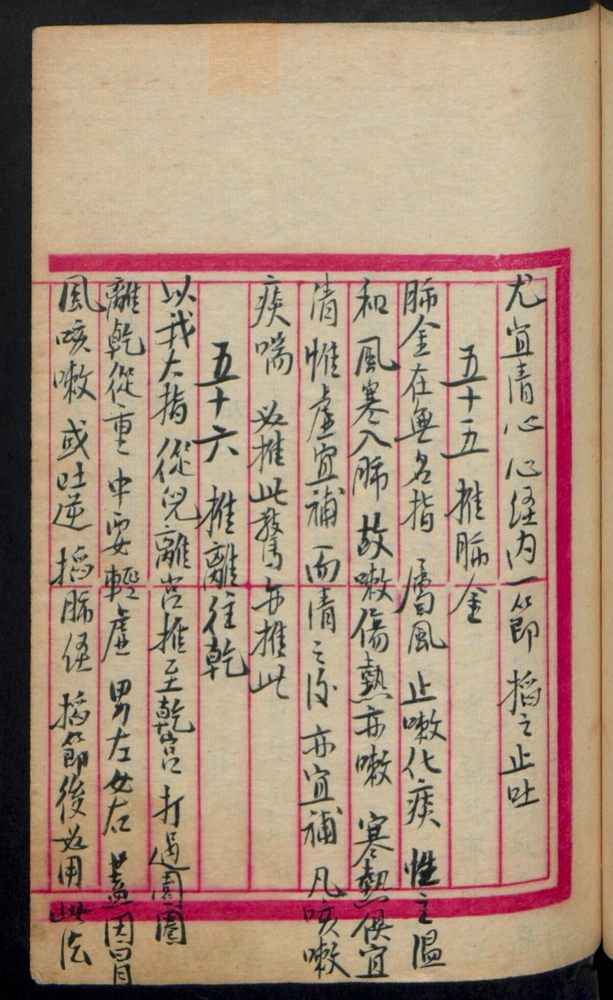 尤宜清心 心经内一節 掐之止吐
五十五 推肺金
肺金在無名指 属風 止嗽化痰 性主温
和 風寒入肺 故嗽傷熱亦嗽 寒熱俱宜
清 惟虛宜補 而清之後 亦宜補 凡咳嗽
痰喘 必推此 驚亦推此
五十六 推離往乾
以我大指 從兒離宮推至乾宮 打过圓圈
離乾從重 中要輕虛 男左女右 蓋因冒
風咳嗽 或吐逆 掐肺经 掐節後必用此法